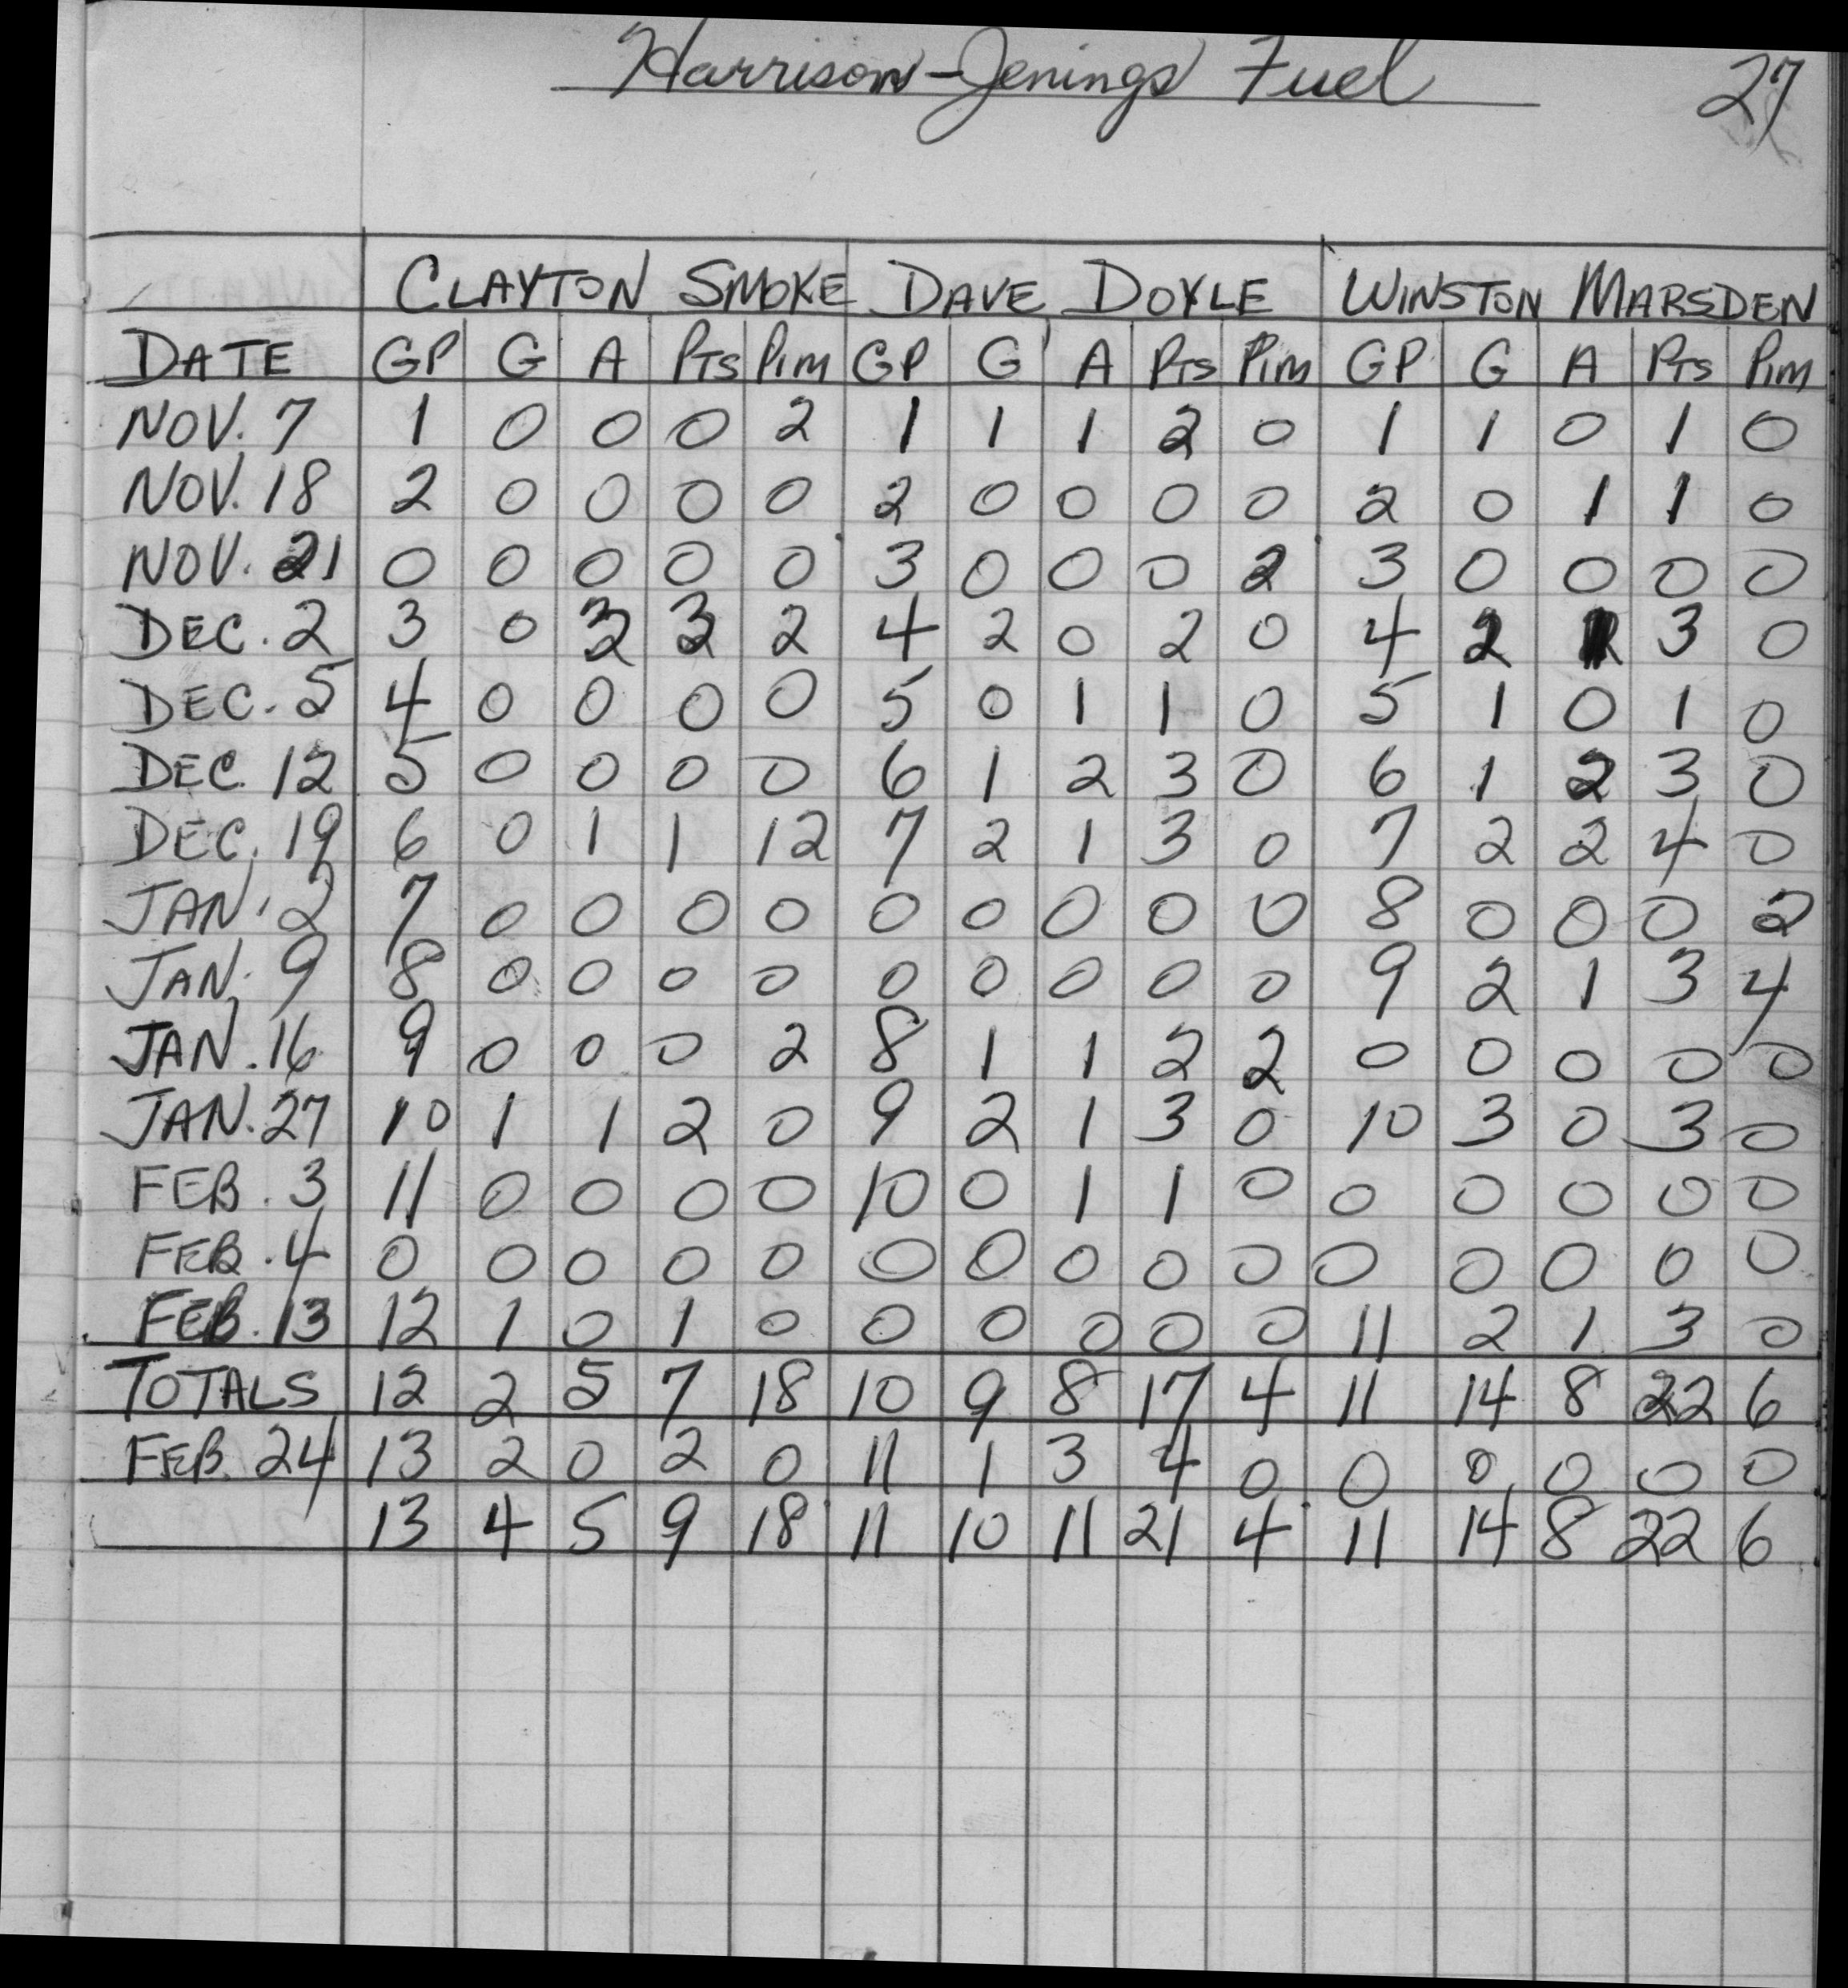 Harrison-Jenings Fuel 27
CLAYTON SMOKE DAVE DOYLE WINSTON MARSDEN
DATE GP G A PTS PIM GP G A PTS PIM GP G A PTS PIM
NOV. 7 1 0 0 0 2 1 1 1 2 0 1 1 0 1 0
NOV. 18 2 0 0 0 0 2 0 0 0 0 2 0 1 1 0
NOV. 21 0 0 0 0 0 3 0 0 0 2 3 0 0 0 0
DEC. 2 3 0 3 3 2 4 2 0 2 0 4 2 1 3 0
DEC. 5 4 0 0 0 0 5 0 1 1 0 5 1 0 1 0
DEC. 12 5 0 0 0 0 6 1 2 3 0 6 1 2 3 0
DEC. 19 6 0 1 1 12 7 2 1 3 0 7 2 2 4 0
JAN. 2 7 0 0 0 0 0 0 0 0 0 8 0 0 0 2
JAN. 9 8 0 0 0 0 0 0 0 0 0 9 2 1 3 4
JAN. 16 9 0 0 0 2 8 1 1 2 2 0 0 0 0 0
JAN. 27 10 1 1 2 0 9 2 1 3 0 10 3 0 3 0
FEB. 3 11 0 0 0 0 10 0 1 1 0 0 0 0 0 0
FEB. 4 0 0 0 0 0 0 0 0 0 0 0 0 0 0 0
FEB. 13 12 1 0 1 0 0 0 0 0 0 11 2 1 3 0
TOTALS 12 2 5 7 18 10 9 8 17 4 11 14 8 22 6
FEB. 24 13 2 0 2 0 11 1 3 4 0 0 0 0 0 0
13 4 5 9 18 11 10 11 21 4 11 14 8 22 6